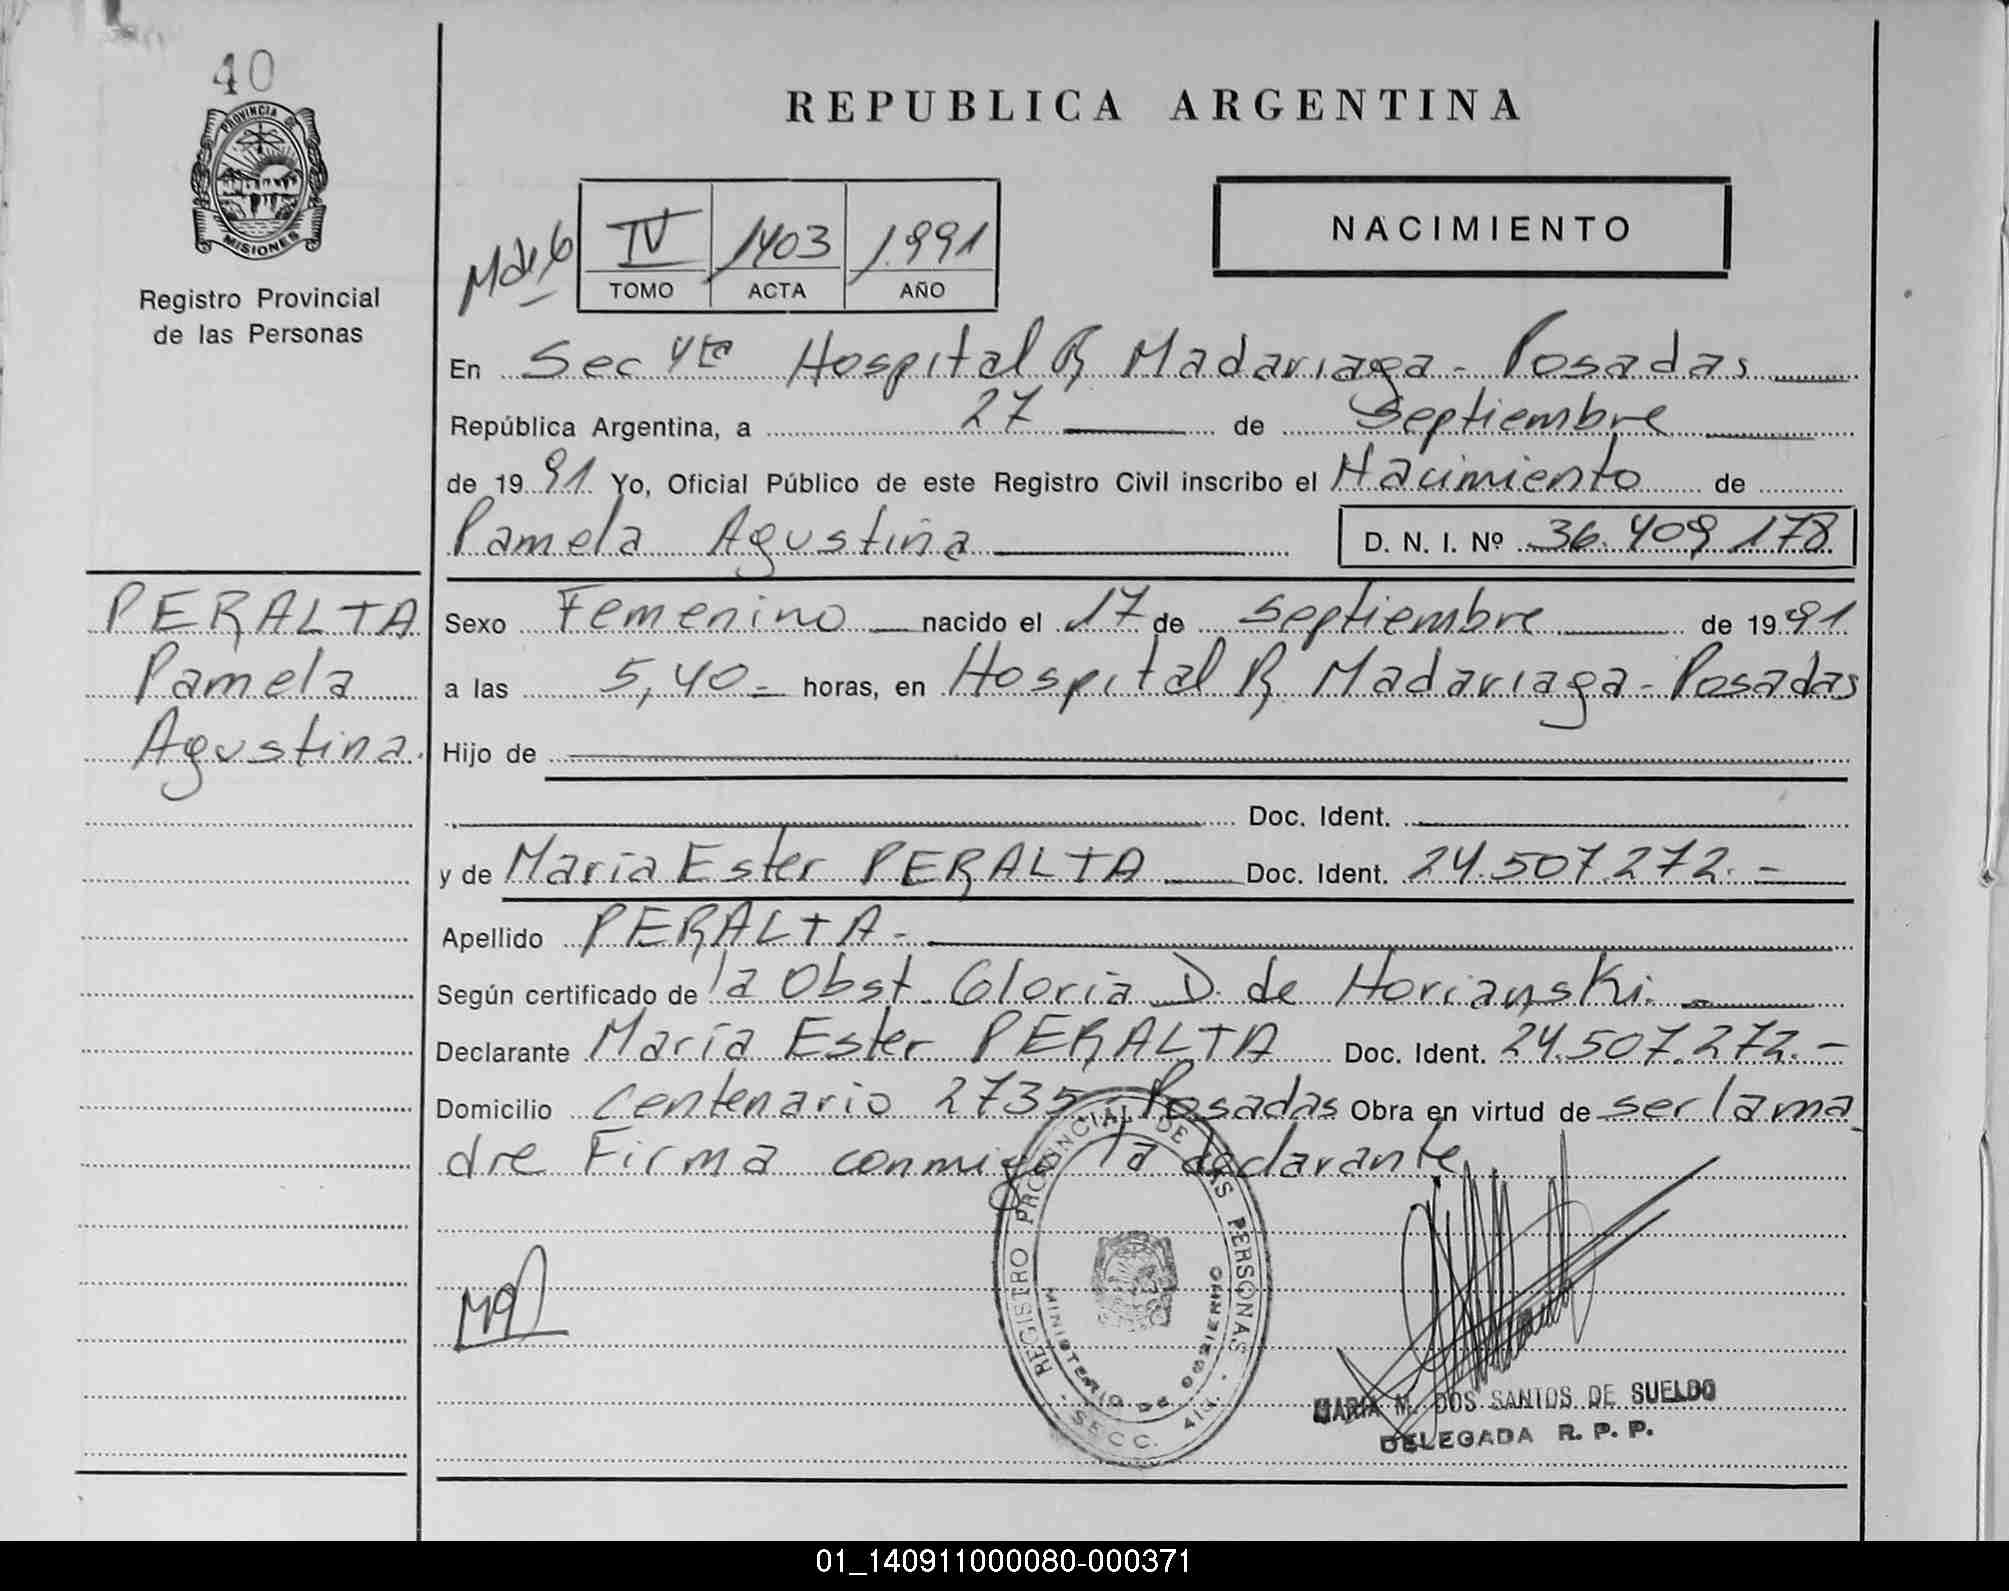 40
PROVINCIA DE
MISIONES
Registro Provincial
de las Personas
REPUBLICA ARGENTINA
NACIMIENTO
IV 1403 1.991
TOMO ACTA AÑO
En Sec 4ta Hospital R. Madariaga - Posadas
República Argentina, a 27 de Septiembre
de 1991 Yo, Oficial Público de este Registro Civil inscribo el Nacimiento de
Pamela Agustina D. N. I. Nº 36.409.178
PERALTA
Pamela
Agustina.
Sexo Femenino nacido el 17 de Septiembre de 1991
a las 5,40 - horas, en Hospital R. Madariaga - Posadas
Hijo de
Doc. Ident.
y de María Ester PERALTA Doc. Ident. 24.507.272.-
Apellido PERALTA -
Según certificado de la Obst. Gloria D. de Horianski.
Declarante María Ester PERALTA Doc. Ident. 24.507.272.-
Domicilio Centenario 2735 - Posadas Obra en virtud de ser la ma
dre Firma conmigo la declarante
REGISTRO PROVINCIAL DE LAS PERSONAS
MINISTERIO DE GOBIERNO
SECC. 4ta.
MARIA M. DOS SANTOS DE SUELDO
DELEGADA R. P. P.
01_140911000080-000371